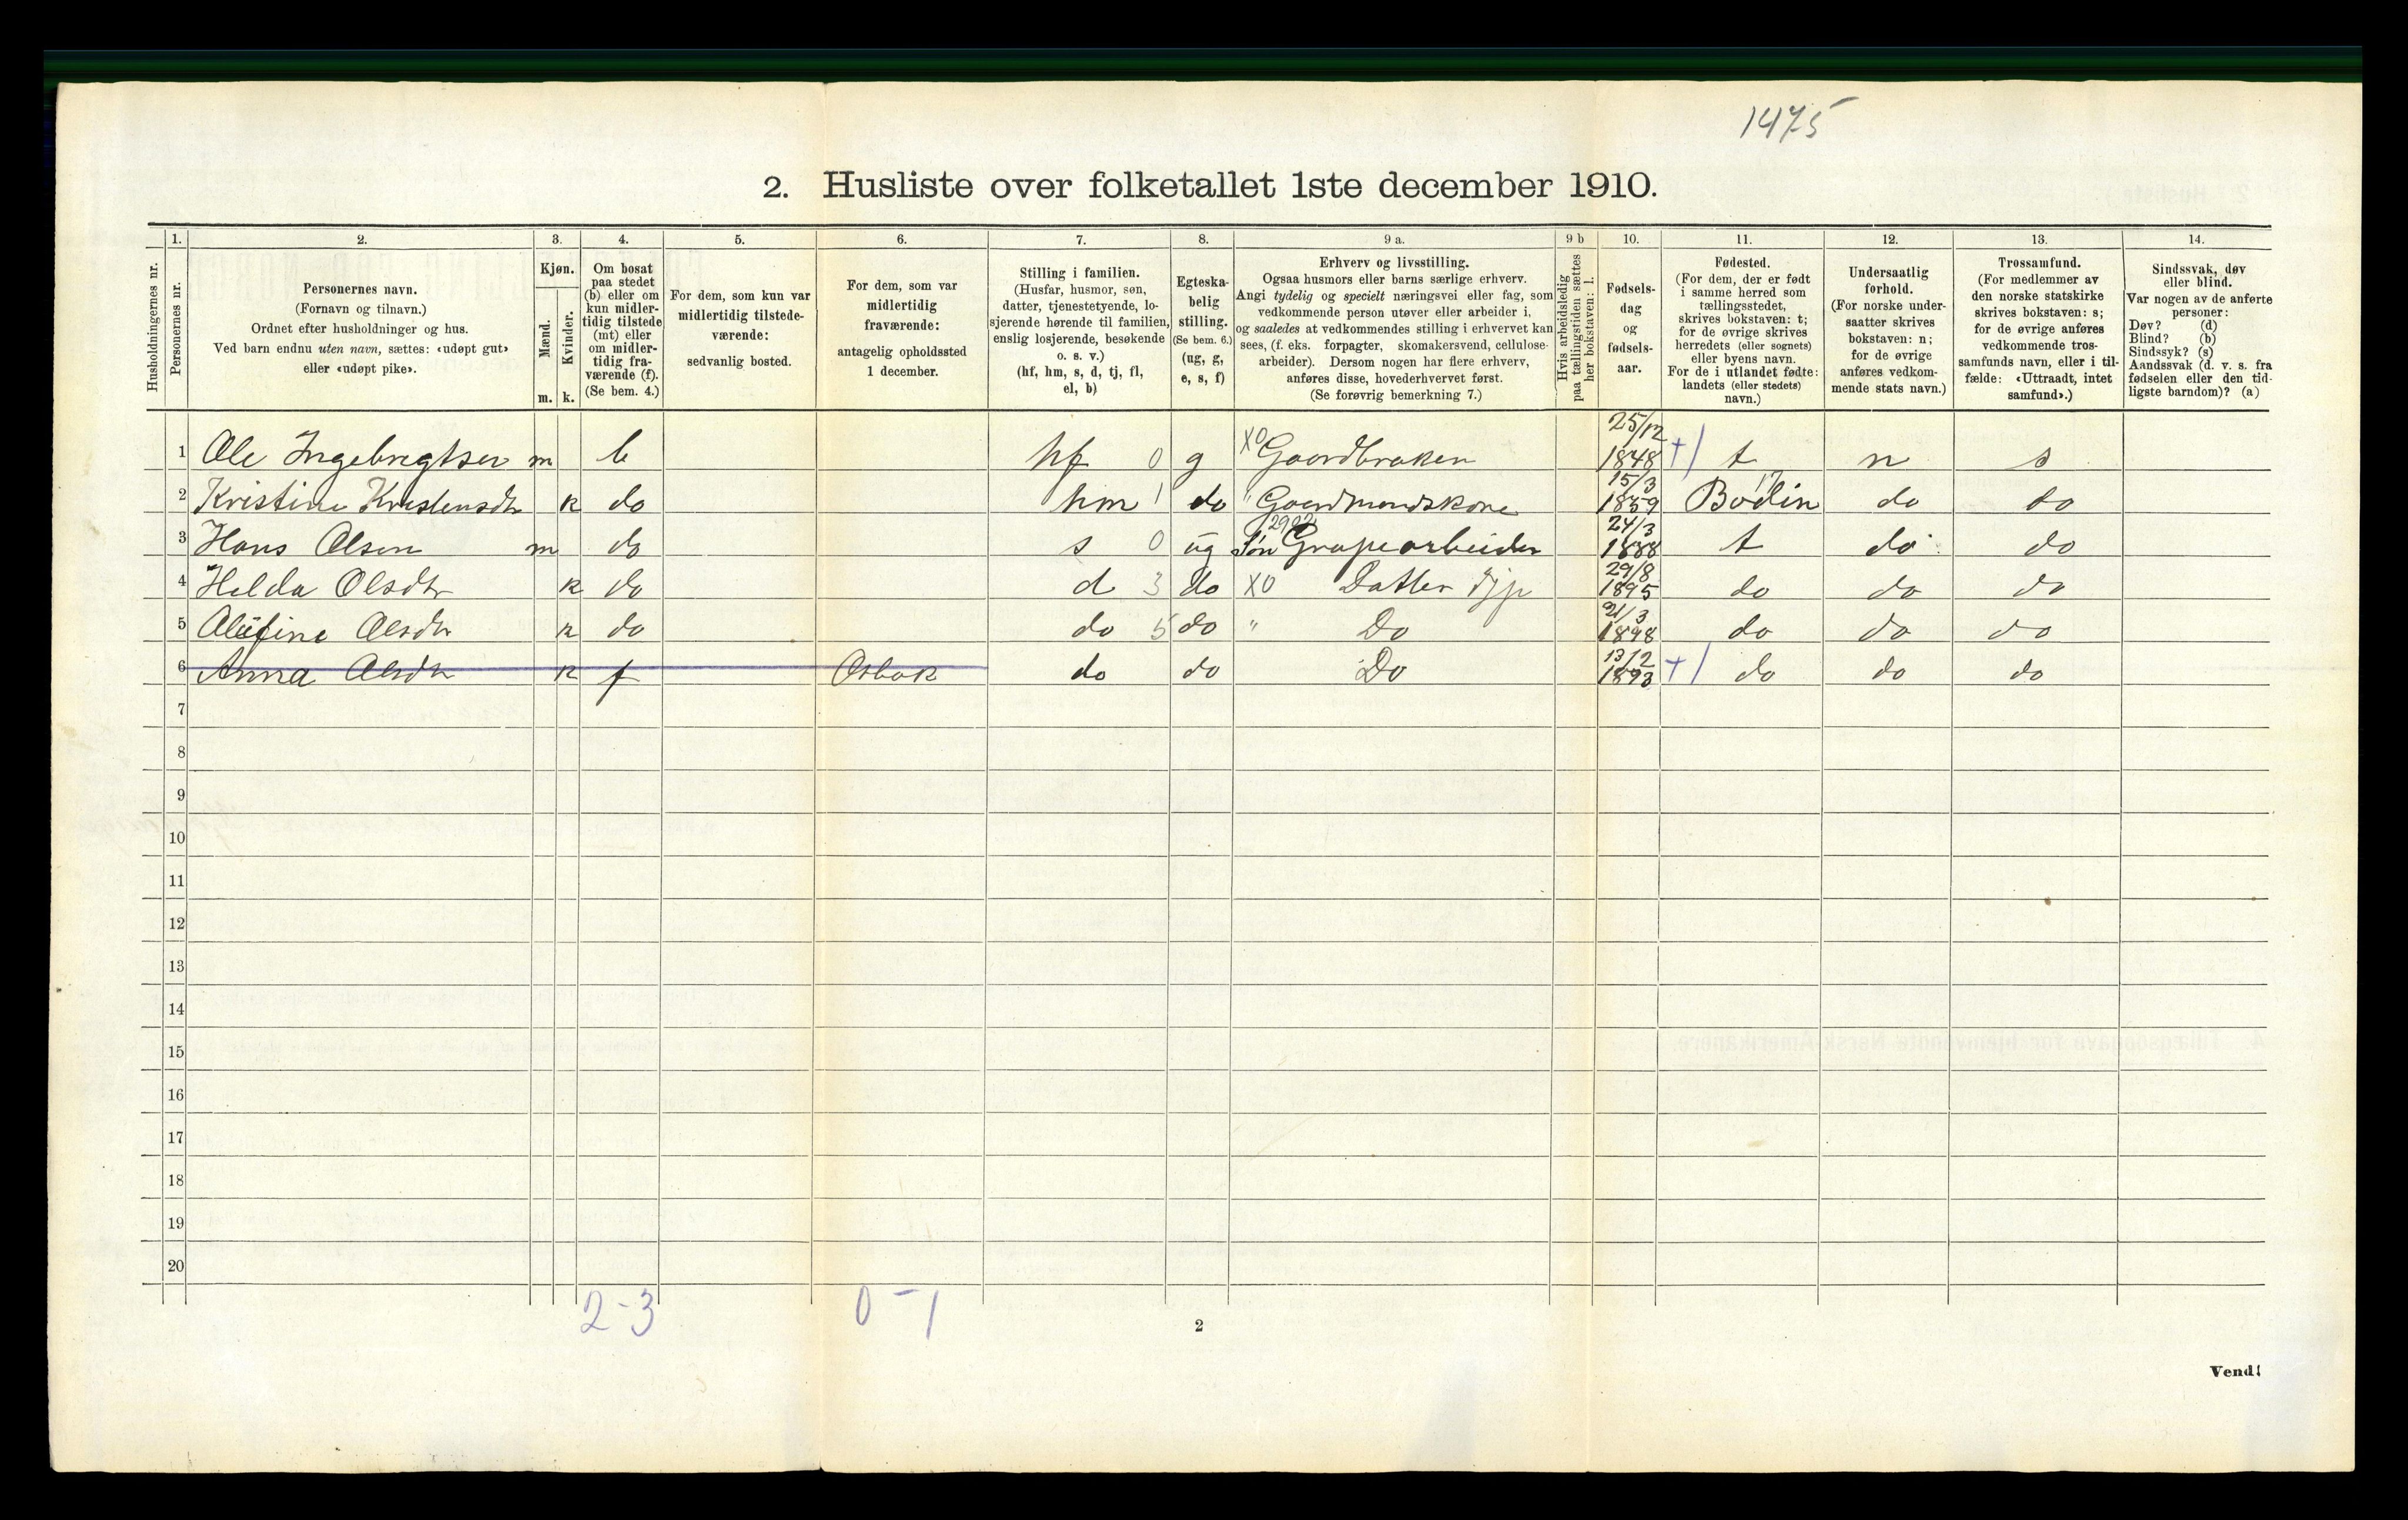 1475
2. Husliste over folketallet 1ste december 1910.
Husholdningernes nr.
1. Personernes nr.
2. Personernes navn.
(Fornavn og tilnavn.)
Ordnet efter husholdninger og hus.
Ved barn endnu uten navn, sættes: «udøpt gut»
eller «udøpt pike».
3. Kjøn.
Mænd. Kvinder.
m. k.
4. Om bosat
paa stedet
(b) eller om
kun midler-
tidig tilstede
(mt) eller
om midler-
tidig fra-
værende (f).
(Se bem. 4.)
5. For dem, som kun var
midlertidig tilstede-
værende:
sedvanlig bosted.
6. For dem, som var
midlertidig
fraværende:
antagelig opholdssted
1 december.
7. Stilling i familien.
(Husfar, husmor, søn,
datter, tjenestetyende, lo-
sjerende hørende til familien,
enslig losjerende, besøkende
o. s. v.)
(hf, hm, s, d, tj, fl,
el, b)
8. Egteska-
belig
stilling.
(Se bem. 6.)
(ug, g,
e, s, f)
9 a. Erhverv og livsstilling.
Ogsaa husmors eller barns særlige erhverv.
Angi tydelig og specielt næringsvei eller fag, som
vedkommende person utøver eller arbeider i,
og saaledes at vedkommendes stilling i erhvervet kan
sees, (f. eks. forpagter, skomakersvend, cellulose-
arbeider). Dersom nogen har flere erhverv,
anføres disse, hovederhvervet først.
(Se forøvrig bemerkning 7.)
9 b Hvis arbeidsledig
paa tællingstiden sættes
her bokstaven: l.
10. Fødsels-
dag
og
fødsels-
aar.
11. Fødested.
(For dem, der er født
i samme herred som
tællingsstedet,
skrives bokstaven: t;
for de øvrige skrives
herredets (eller sognets)
eller byens navn.
For de i utlandet fødte:
landets (eller stedets)
navn.)
12. Undersaatlig
forhold.
(For norske under-
saatter skrives
bokstaven: n;
for de øvrige
anføres vedkom-
mende stats navn.)
13. Trossamfund.
(For medlemmer av
den norske statskirke
skrives bokstaven: s;
for de øvrige anføres
vedkommende tros-
samfunds navn, eller i til-
fælde: «Uttraadt, intet
samfund».)
14. Sindssvak, døv
eller blind.
Var nogen av de anførte
personer:
Døv? (d)
Blind? (b)
Sindssyk? (s)
Aandssvak (d. v. s. fra
fødselen eller den tid-
ligste barndom)? (a)
1 Ole Ingebregtsen m b hf 0 g X0 Gaardbruker 25/12 1848 +/ t n s
2 Kristine Kristensdtr k do hm 1 do " Gaardmandskone 15/3 1859 Bodin 17 do do
3 Hans Olsen m do s 0 ug Søn Grupearbeider 24/3 1888 t do do
4 Helda Olsdtr k do d 3 do X0 Datter 29/8 1895 do do do
5 Olsdtr k do do 5 do " Do 21/3 1898 do do do
6 Anna Olsdtr k f Osbak do do Do 13/12 1893 +/ do do do
7
8
9
10
11
12
13
14
15
16
17
18
19
20
2-3 0-1
2
Vend!